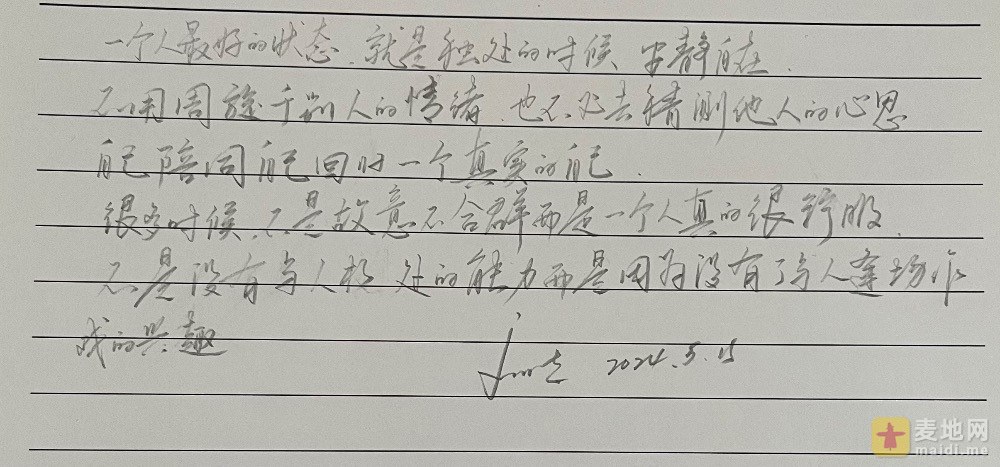 一个人最好的状态.就是独处的时候 安静自在.
不用周旋于别人的情绪.也不必去猜测他人的心思
自己陪同自己回归一个真实的自己.
很多时候.不是故意不合群而是一个人真的很舒服.
不是没有与人相处的能力而是因为没有了与人逢场作
戏的兴趣
2024.5.15
麦地网
maidi.me